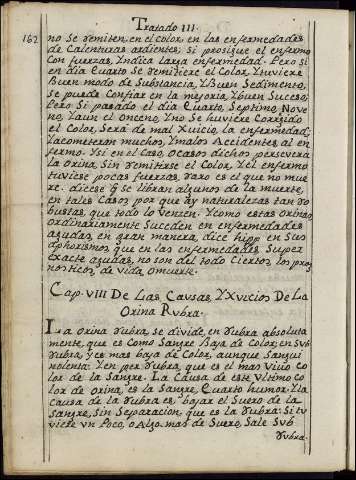 Tratado III.
162
no Se remiten, en el Color, en las enfermedades
de Calenturas ardientes; Si prosigue el enfermo
Con fuerzas, Yndica larga enfermedad. Pero Si
en dia Quarto Se remitiere el Color, Ytuviere
Buen modo de Substancia, YBuen Sedimento,
Se puede Confiar en la mejoria, Ybuen Suceso;
Pero Si pasado el dia Quarto, Septimo, Nove
no, Yaun el Onceno, Yno Se huviere Corregido
el Color, Sera de mal Xuicio, la enfermedad;
Yacometeran muchos, Ymalos Accidentes, al en
fermo. Ysi en el Caso, o Casos dichos persevera
la Orina, Sin remitirse el Color, Yel enfermo
tuviese pocas fuerzas, raro es el que no mue
re. dicese q Se libran algunos de la muerte,
en tales Casos, por que ay naturalezas tan ro
bustas, que todo lo venzen. Ycomo estas orinas
ordinariamente Suceden en enfermedades
agudas, en gran manera, dice hipp en Sus
Aphorismos, que en las enfermedades Super
exacte agudas, no son del todo Ciertos, los pro
nosticos, de vida, o muerte.
Cap. VIII De Las Causas, YXvicios De La
Orina Rvbra.
La orina rubra, se divide, en rubra absoluta
mente, que es Como Sangre Baja de Color; en Sub
rubra, yes mas baja de Color, aunque Sangui
nolenta: Yen per rubra, que es el mas vivo Co
lor de la Sangre. La Causa de este vltimo Co
lor de orina, es la Sangre, Quarto humor, Yla
Causa de la rubra es, bajar el Suero de la
Sangre, Sin Separacion, que es la rubra: Si tu
viere vn Poco, o Algo mas de Suero, Sale Sub
rubra.